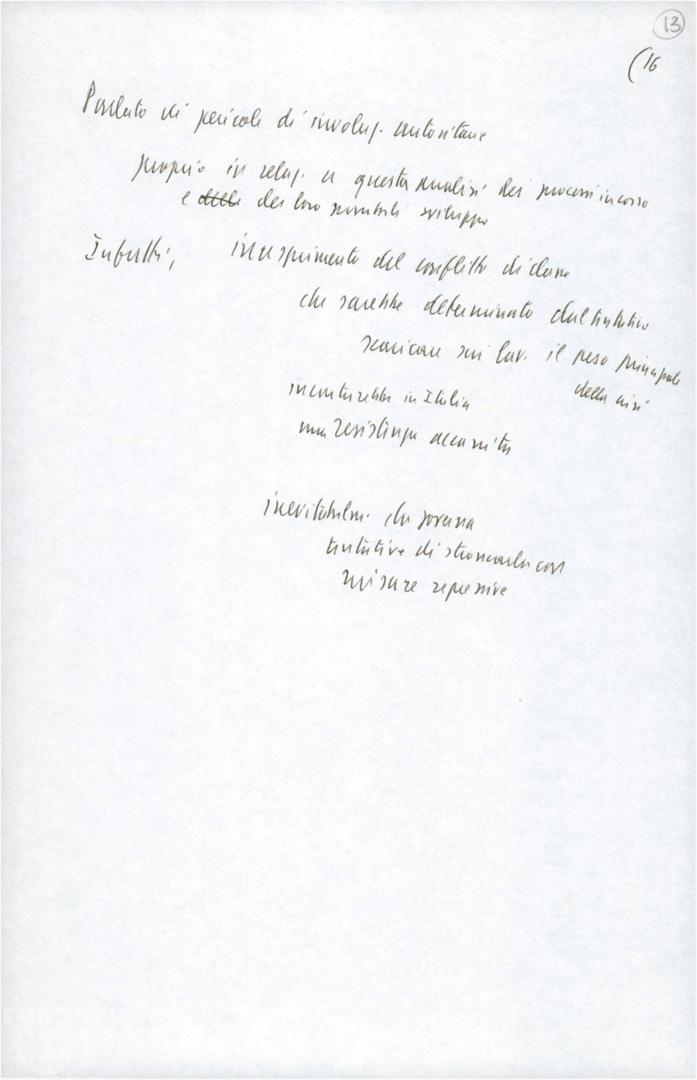 13
(16
Parlato di pericoli di involuz. autoritarie
proprio in relaz. a questa analisi dei processi in corso
e delle dei loro possibili sviluppo
Infatti, inasprimento del conflitto di classe
che sarebbe determinato dal tentativo
scaricare sui lav. il peso principale
della crisi
incontrerebbe in Italia
una resistenza accanita
inevitabilm. che
tentative di stroncarla con
misure repressive